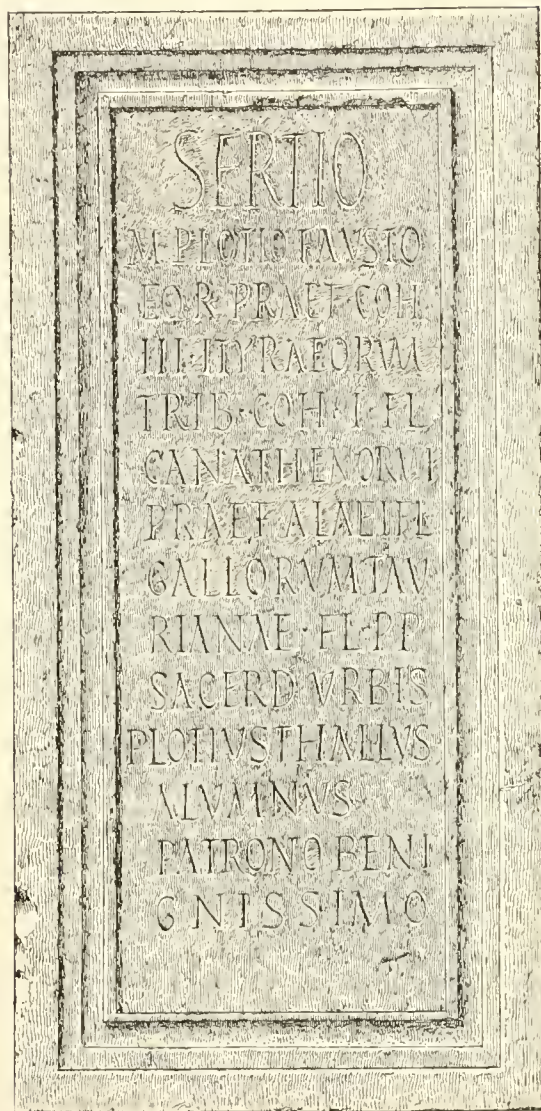 SERTIO
M·PLOTIO FAVSTO
EQ·R·PRAEF·COH
III·ITYRAEORVM
TRIB·COH·I·FL
CANATHENORVM
PRAEF ALAE I FL
GALLORVM TAV
RIANAE·FL·PP
SACERD VRBIS
PLOTIVS THALLVS
ALVMNVS
PATRONO BENI
GNISSIMO